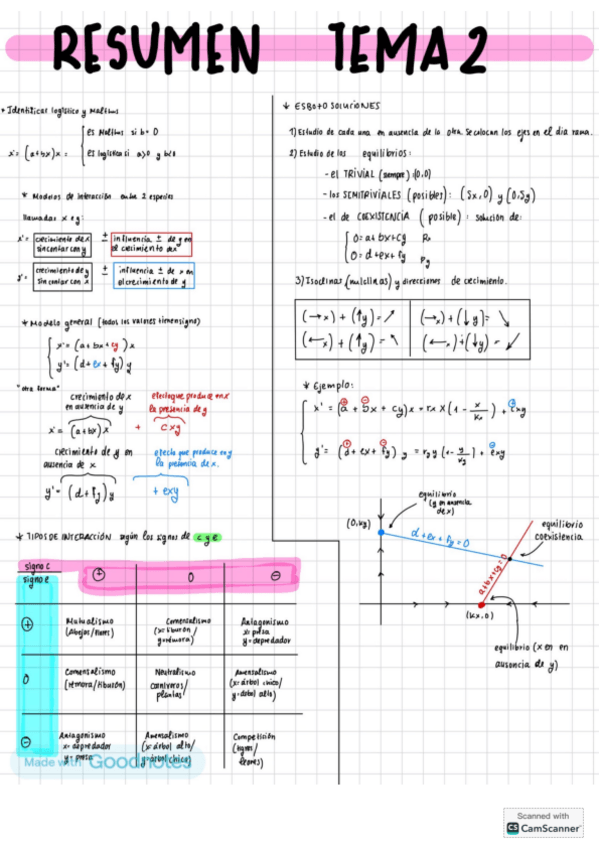 RESUMEN TEMA 2
* Identificar logístico y Malthus
x' = (a+bx)x = { es Malthus si b = 0
es logístico si a>0 y b<0
* Modelos de interacción entre 2 especies
llamadas x e y:
x' = crecimiento de x sin contar con y ± influencia ± de y en el crecimiento de x
y' = crecimiento de y sin contar con x ± influencia ± de x en el crecimiento de y
* Modelo general (todos los valores tienen signo)
{ x' = (a + bx + cy) x
y' = (d + ex + fy) y
"otra forma"
crecimiento de x en ausencia de y
efecto que produce en x la presencia de y
x' = (a+bx)x + cxy
crecimiento de y en ausencia de x
efecto que produce en y la presencia de x.
y' = (d + fy) y + exy
* TIPOS DE INTERACCIÓN según los signos de c y e
signo c
signo e
+ 0 -
+ Mutualismo (Abejas/flores)
Comensalismo (x: tiburón/ y: rémora)
Antagonismo x: presa y = depredador
0 Comensalismo (rémora/tiburón)
Neutralismo carnívoros/ plantas
Amensalismo (x: árbol chico/ y: árbol alto)
- Antagonismo x: depredador y = presa
Amensalismo (x: árbol alto/ y: árbol chico)
Competición (tigres/ leones)
Made with Goodnotes
↓ ESBOZO SOLUCIONES
1) Estudio de cada una en ausencia de la otra. Se colocan los ejes en el diagrama.
2) Estudio de los equilibrios:
- el TRIVIAL (siempre) (0,0)
- los SEMITRIVIALES (posibles): (Sx, 0) y (0, Sy)
- el de COEXISTENCIA (posible): solución de:
{ 0 = a + bx + cy Rx
0 = d + ex + fy Ry
3) Isoclinas (nulclinas) y direcciones de crecimiento.
(→x) + (↑y) = ↗ (→x) + (↓y) = ↘
(←x) + (↑y) = ↖ (←x) + (↓y) = ↙
* Ejemplo:
{ x' = (a + bx + cy) x = rx x (1 - x/Kx) + cxy
y' = (d + ex + fy) y = ry y (1 - y/Ky) + exy
equilibrio (y en ausencia de x)
(0, Ky)
d + ex + fy = 0
equilibrio coexistencia
a+bx+cy = 0
(Kx, 0)
equilibrio (x en ausencia de y)
Scanned with
CS CamScanner